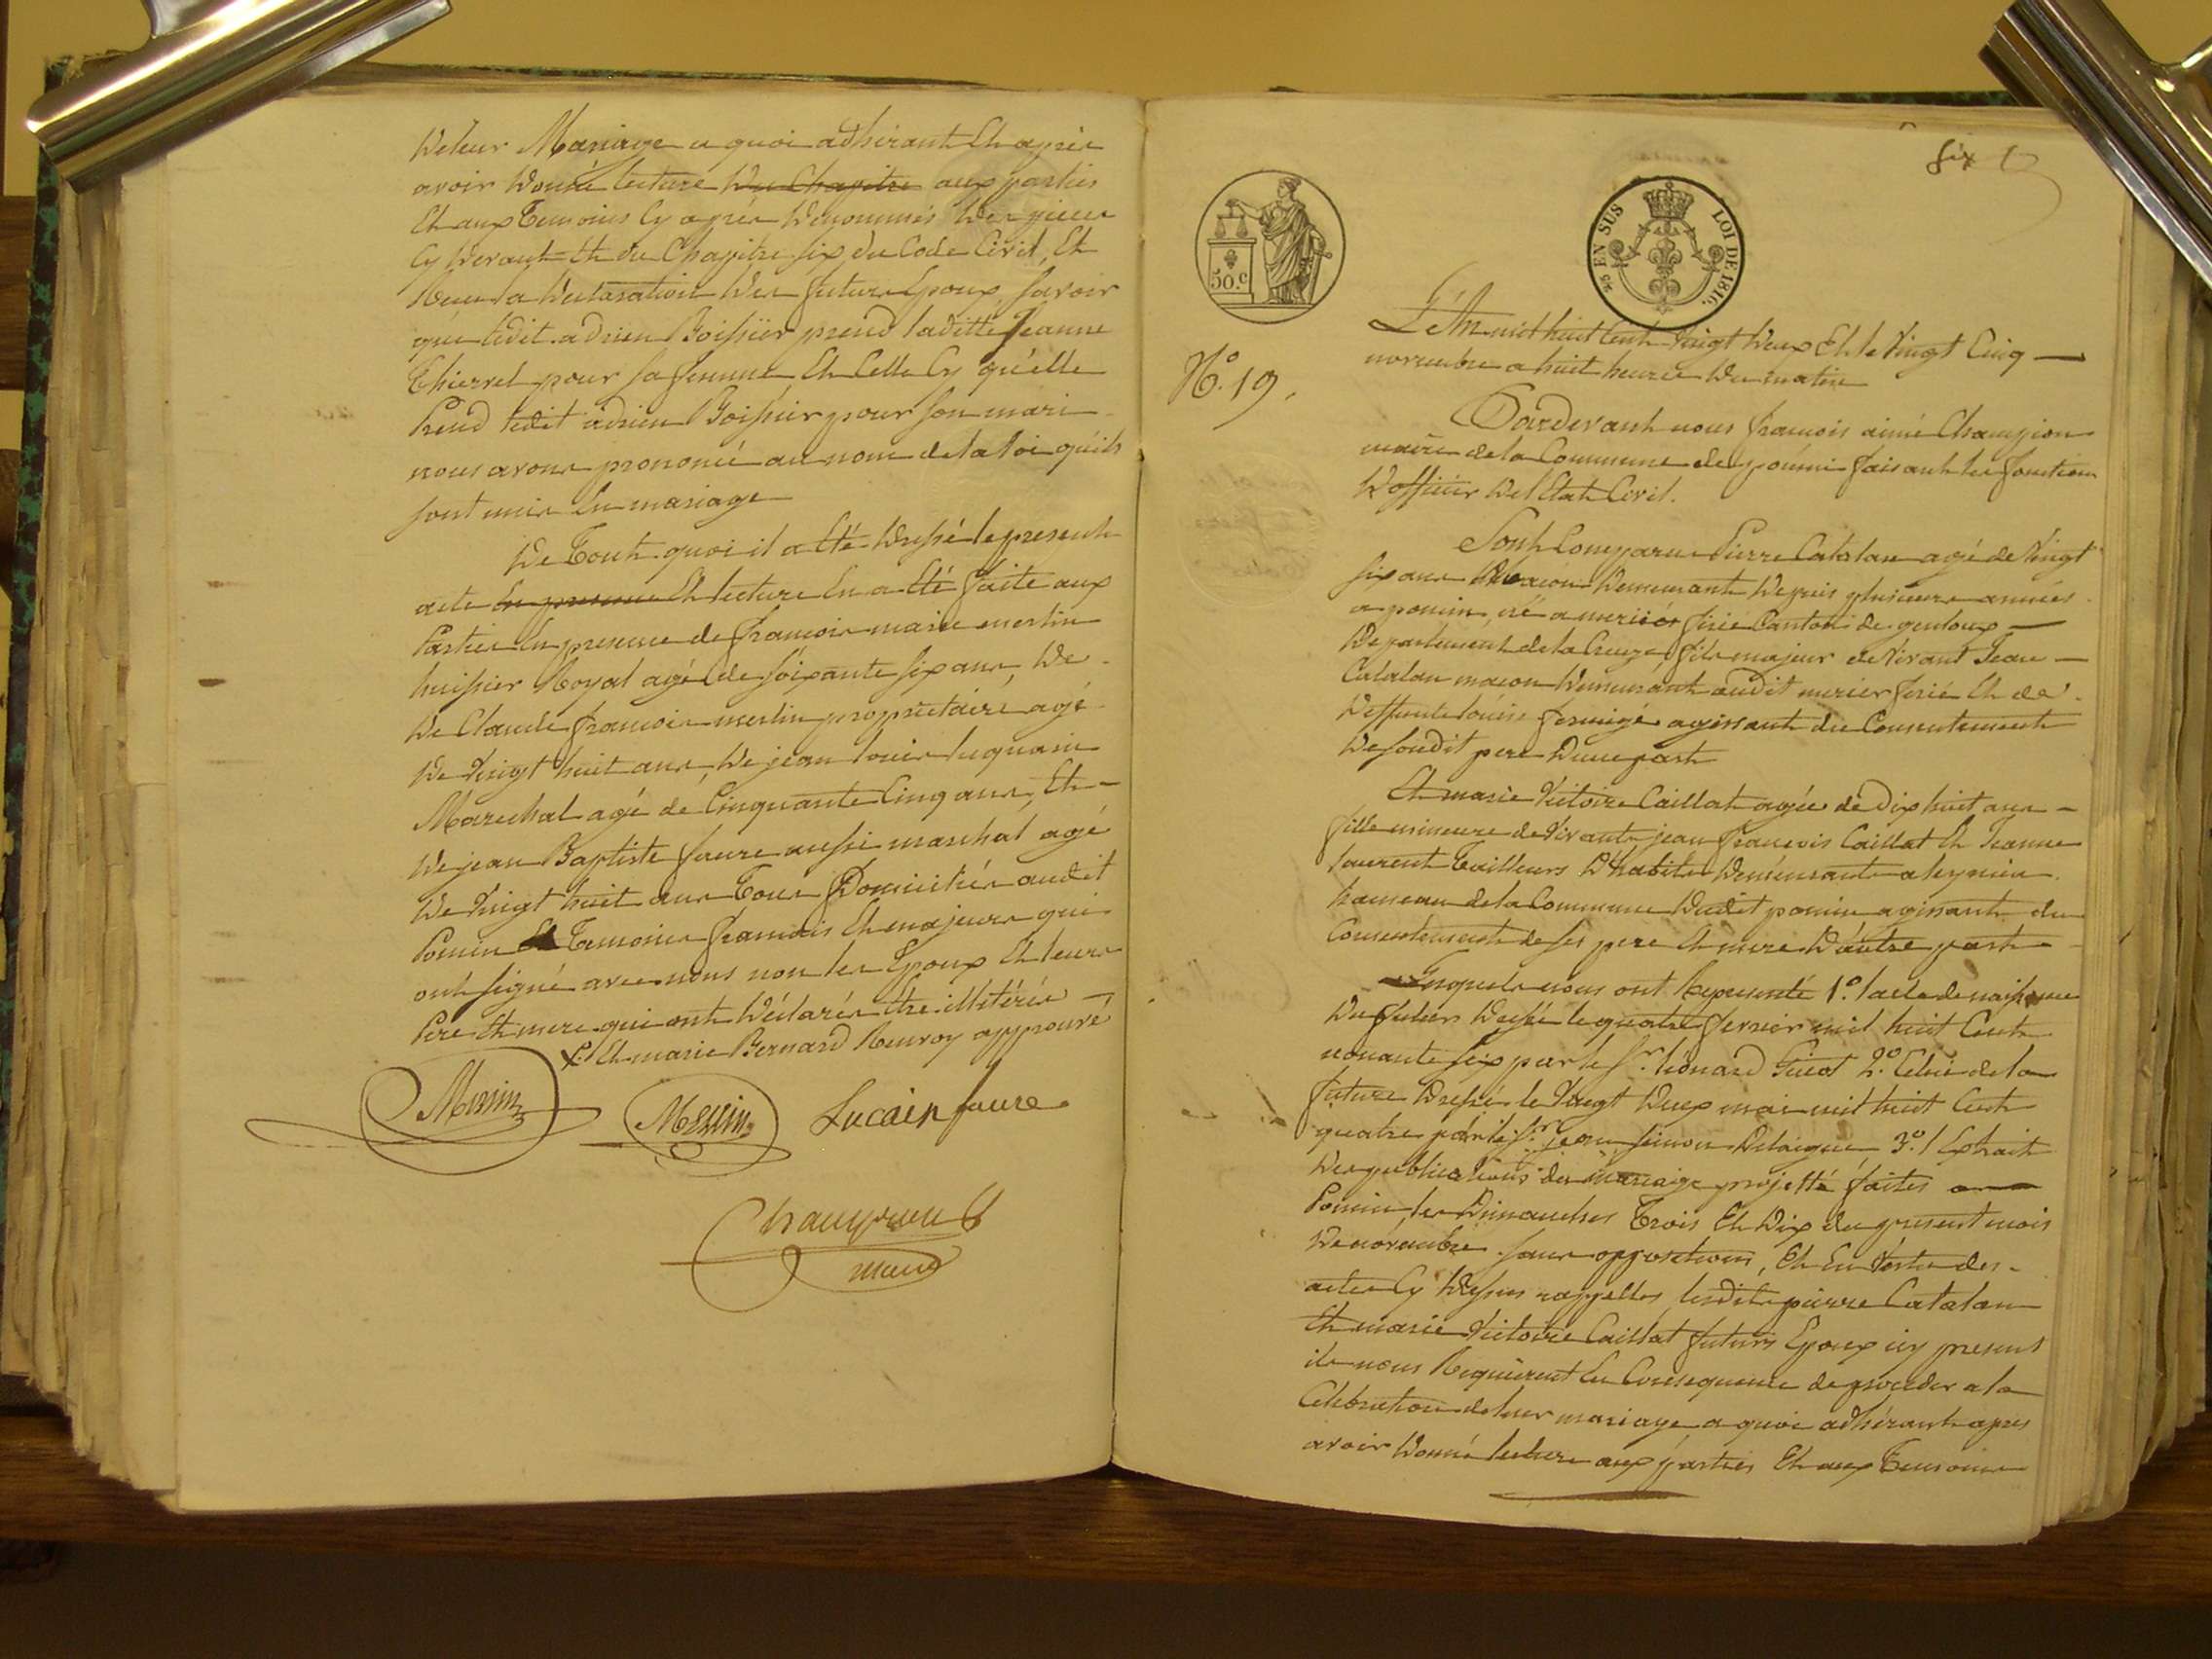 de leur Mariage a quoi adhérant Et après
avoir donné lecture du Chapitre aux parties
Et aux Temoins Cy après denommés des pieces
Cy devant Et du Chapitre six du Code Civil, Et
Recu la declaration des futurs Epoux, savoir
que ledit adrien Boissier prend laditte Jeanne
pour sa femme Et Celle Cy qu'elle
Prend ledit adrien Boissier pour son mari
nous avons prononcé au nom de la loi qu'ils
sont unis En mariage
De Tout quoi il a Eté dressé le present
acte En presence Et lecture En a Eté faite aux
Parties En presence de francois marie merlin
huissier Royal agé de soixante six ans, de
De Claude francois merlin propriétaire agé
De Vingt huit ans, De jean louis luquain
Marechal agé de Cinquante Cinq ans, Et
De jean Baptiste faure aussi marchal agé
De Vingt huit ans Tous Domiciliés audit
Poncin Temoins francais Et majeurs qui
ont signé avec nous non les Epoux Et leurs
Pere Et mere qui ont déclarés être illitérés
Et marie Bernard approuvé
Merlin Merlin Lucain faure
Champion
maire
six
50.c
25 EN SUS LOI DE 1816.
No. 19.
L'An mil huit Cent Vingt deux Et le Vingt Cinq
novembre a huit heures du matin
Pardevant nous francois aimé Champion
maire de la Commune de poncin faisant les fonctions
D'officier de l'Etat Civil.
Sont Comparus Pierre Catalan agé de Vingt
six ans Macon demeurant depuis plusieurs années
a poncin, né a Canton de gentoux
Departement de la Creuze, fils majeur de Vivant Jean
Catalan macon demeurant audit Et de
Deffunte louise agissant du Consentement
De soudit pere d'une part
Et marie Victoire Caillat agée de dix huit ans
fille mineure de Vivants jean francois Caillat Et Jeanne
laurent Tailleurs D'habits demeurants a
hameau de la Commune dudit poncin agissant du
Consentement de ses pere Et mere d'autre part
Lesquels nous ont Representé 1.o l'acte de naissance
Du futur dressé le quatre fervier mil huit Cent
nonante six par le Sr. léonard 2.o Celui de la
future dressé le Vingt deux mai mil huit Cent
quatre par le Sr. jean simon Delaigue 3.o l'Extrait
Des publications du mariage projetté faites a
Poncin les Dimanches Trois Et Dix du present mois
De novembre sans oppositions, Et En Vertu des
actes Cy dessus rappelles, lesdits pierre Catalan
Et marie Victoire Caillat futurs Epoux icy presens
ils nous Requierent En Consequence de proceder a la
Celebration de leur mariage a quoi adhérant apres
avoir donné lecture aux parties Et aux Temoins